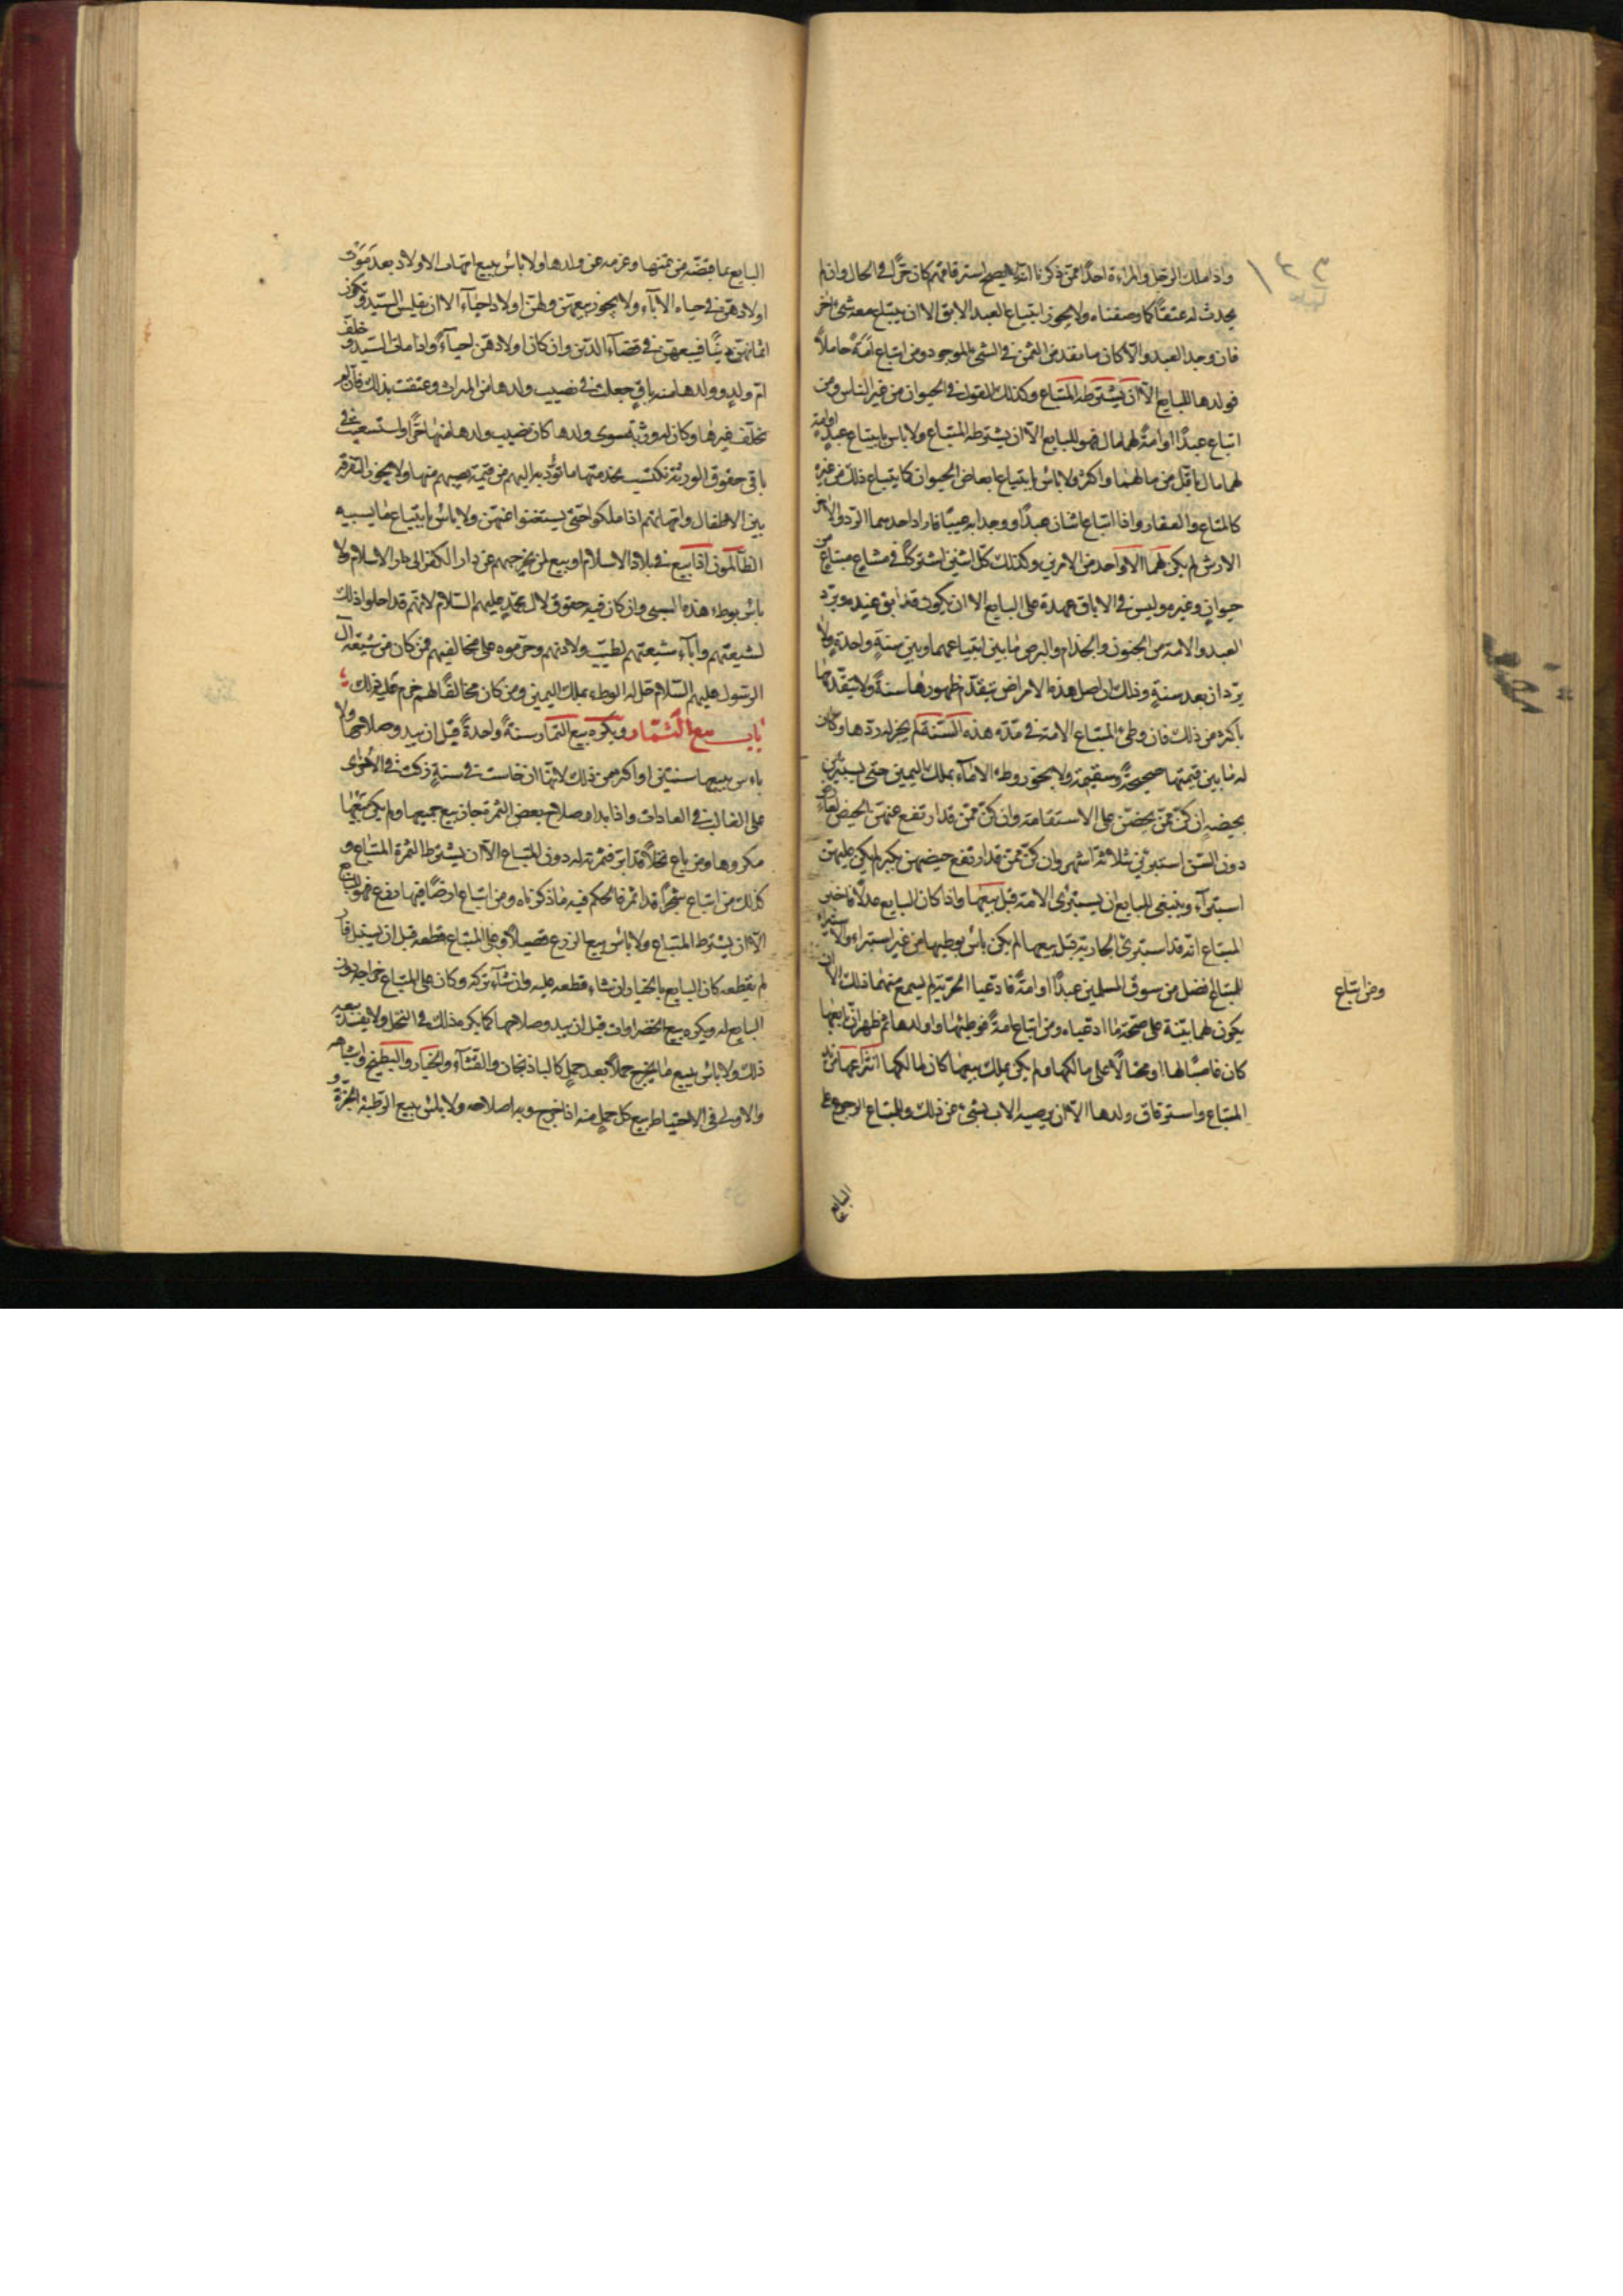 واذا ملك الرجل والمراة احدا ممن ذكرنا انه لا يصح استرقاقهم كان حرا في الحال وان لم
يحدث له عتقا كما وصفناه ولا يجوز ابتياع العبد الابق الا ان يبتاع معه شئ اخر
فان وجد العبد والا كان ما نقد من الثمن في الشئ الموجود ومن ابتاع امة حاملا
فولدها للبايع الا ان يشترطه المبتاع وكذلك القول في الحيوان من غير الناس ومن
ابتاع عبدا او امة لهما مال فهو للبايع الا ان يشترطه المبتاع ولا باس بابتياع عبد او امة
لهما مال باقل من مالهما واكثر ولا باس بابتياع ابعاض الحيوان كما يبتاع ذلك من غيره
كالمتاع والعقار واذا ابتاع اثنان عبدا ووجدا به عيبا فاراد احدهما الرد والاخر
الارش لم يكن لهما الا واحد من الامرين وكذلك كل اثنين اشتركا في مشاع مبتاع من
حيوان وغيره وليس في الاباق عهدة على البايع الا ان يكون قد ابق عنده ويرد
العبد والامة من الجنون والجذام والبرص ما بين ابتياعهما وبين سنة واحدة ولا
يردان بعد سنة وذلك ان اصل هذه الامراض يتقدم ظهورها سنة ولا يتقدمها
باكثر من ذلك فان وطئ المبتاع الامة في مدة هذه السنة لم يجز له ردها وكان
له ما بين قيمتها صحيحة وسقيمة ولا يجوز وطء الاماء بملك اليمين حتى يستبرئن
بحيضة ان كن ممن يحضن على الاستقامة وان كن ممن قد ارتفع عنهن الحيض لعارض
دون السن استبرئن ثلاثة اشهر وان كن ممن قد ارتفع حيضهن بكبر لم يكن عليهن
استبراء وينبغي للبايع ان يستبرئ الامة قبل بيعها واذا كان البايع عدلا فاخبر
المبتاع انه قد استبرئ الجارية قبل بيعها لم يكن باس بوطيها من غير استبراء والاستبراء
للمبتاع افضل من سوق المسلمين عبدا او امة فادعيا الحرية لم يسمع منهما ذلك الا ان
يكون لهما بينة على صحة ما ادعياه ومن ابتاع امة فوطئها واولدها ثم ظهر ان بايعها
كان غاصبا لها او محتالا على مالكها ولم يكن يملك بيعها كان لمالكها انتزاعها من يد
المبتاع واسترقاق ولدها الا ان يرضيه الاب بشئ عن ذلك وللمبتاع الرجوع على
ومن ابتاع
البايع
البايع بما قبضه من ثمنها وغرمه عن ولدها ولا باس ببيع امهات الاولاد بعد موت
اولادهن في حياه الاباء ولا يجوز بيعهن ولهن اولاد احياء الا ان يفلس السيد وتكون
اثمانهن دينا فيبيعهن في قضاء الدين وان كان اولادهن احياء واذا مات السيد وخلف
ام ولد وولدها منه باق جعلت في نصيب ولدها من الميراث وعتقت بذلك فان لم
يخلف غيرها وكان له ورثة سوى ولدها كان نصيب ولدها منها حرا واستسعيت في
باقي حقوق الورثة تكتسب بخدمتها ما تؤديه اليهم من قيمة نصيبهم منها ولا يجوز التفرقة
بين الاطفال وامهاتهم اذا ملكوا حتى يستغنوا عنهن ولا باس بابتياع ما يسبيه
الظالمون اذا بيع في بلاد الاسلام او بيع لمن يخرجهم عن دار الكفر الى دار الاسلام ولا
باس بوطء هذه السبي وان كان فيه حقوق لال محمد عليهم السلام لانهم قد احلوا ذلك
لشيعتهم واباء شيعتهم لطيب ولادتهم وحرموه على مخالفيهم فمن كان من شيعة ال
الرسول عليهم السلام حل له الوطء بملك اليمين ومن كان مخالفا لهم حرم عليه ذلك
باب بيع الثمار ويكره بيع الثمار سنة واحدة قبل ان يبدو صلاحها ولا
باس ببيعها سنتين او اكثر من ذلك لانها ان خاست في سنة زكت في الاخرى
على الغالب في العادات واذا بدا صلاح بعض الثمرة جاز بيع جميعها ولم يكن بيعها
مكروها ومن باع نخلا قد ابر فثمرته له دون المبتاع الا ان يشترط الثمرة المبتاع و
كذلك من ابتاع شجرا قد اثمر فالحكم فيه ما ذكرناه ومن ابتاع ارضا فيها زرع فهو للبايع
الا ان يشترط المبتاع ولا باس ببيع الزرع قصيلا وعلى المبتاع قطعه قبل ان يسنبل فان
لم يقطعه كان البايع بالخيار ان شاء قطعه عليه وان شاء تركه وكان على المبتاع خراجه دون
البايع له ويكره بيع الخضراوات قبل ان يبدو صلاحها كما يكره ذلك في النخل ولا يفسد بيعه
ذلك ولا باس ببيع ما يخرج حملا بعد حمل كالباذنجان والقثاء والخيار والبطيخ واشباهه
والاولى في الاحتياط بيع كل حمل منه اذا خرج وبدا صلاحه ولا باس ببيع الرطبة الجزة و